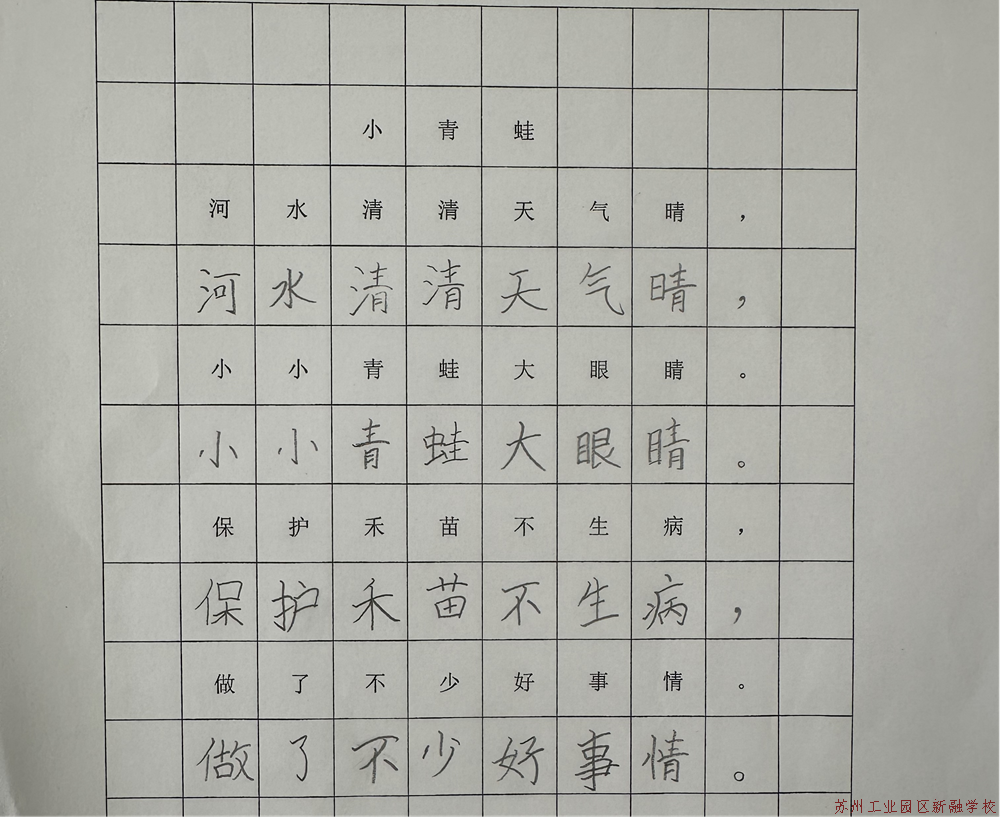 小青蛙
河水清清天气晴，
河水清清天气晴，
小小青蛙大眼睛。
小小青蛙大眼睛。
保护禾苗不生病，
保护禾苗不生病，
做了不少好事情。
做了不少好事情。
苏州工业园区新融学校